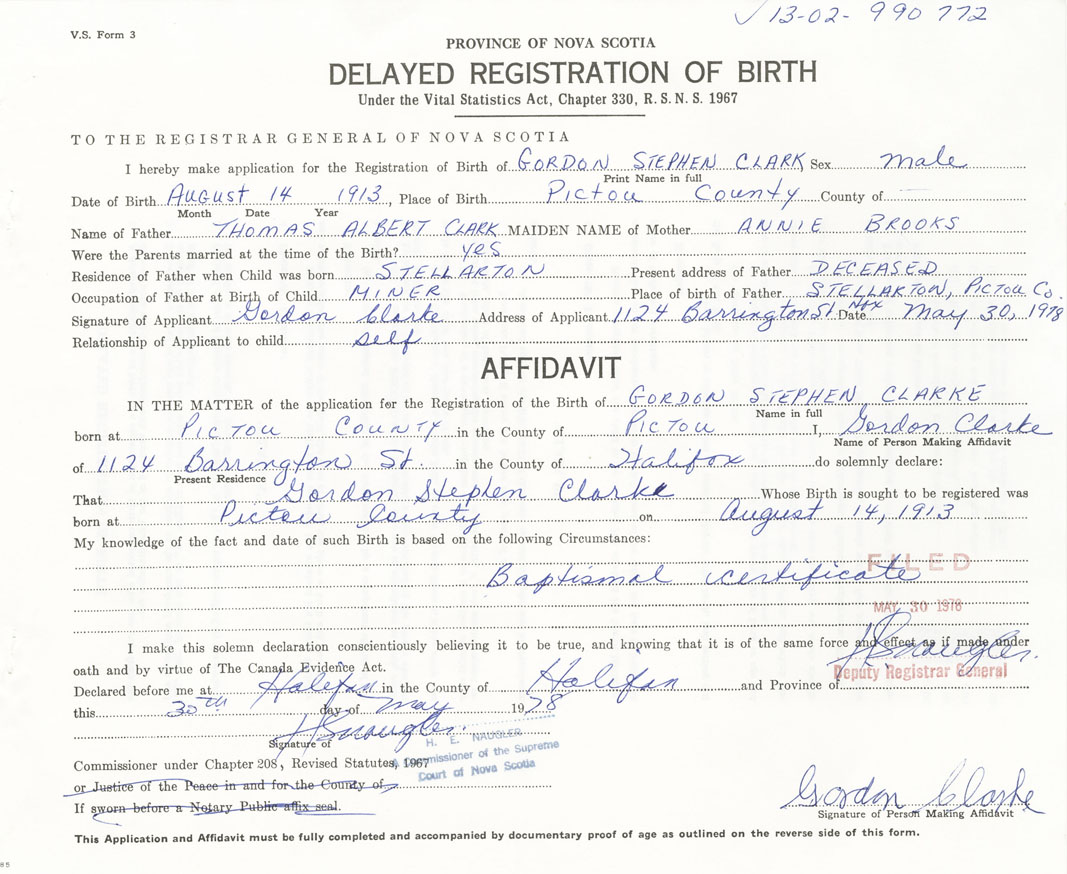 ✓ 13-02- 990 772
V.S. Form 3
PROVINCE OF NOVA SCOTIA
DELAYED REGISTRATION OF BIRTH
Under the Vital Statistics Act, Chapter 330, R. S. N. S. 1967
TO THE REGISTRAR GENERAL OF NOVA SCOTIA
I hereby make application for the Registration of Birth of GORDON STEPHEN CLARK Sex Male
Print Name in full
Date of Birth AUGUST 14 1913, Place of Birth PICTOU COUNTY County of
Month Date Year
Name of Father THOMAS ALBERT CLARK MAIDEN NAME of Mother ANNIE BROOKS
Were the Parents married at the time of the Birth? yes
Residence of Father when Child was born STELLARTON Present address of Father DECEASED
Occupation of Father at Birth of Child MINER Place of birth of Father STELLARTON, PICTOU CO.
Signature of Applicant Gordon Clarke Address of Applicant 1124 Barrington St. Hfx Date May 30, 1978
Relationship of Applicant to child self
AFFIDAVIT
IN THE MATTER of the application for the Registration of the Birth of GORDON STEPHEN CLARKE
Name in full
born at PICTOU COUNTY in the County of PICTOU I, Gordon Clarke
Name of Person Making Affidavit
of 1124 Barrington St. in the County of Halifax do solemnly declare:
Present Residence
That Gordon Stephen Clarke Whose Birth is sought to be registered was
born at Pictou County on August 14, 1913
My knowledge of the fact and date of such Birth is based on the following Circumstances:
FILED
Baptismal certificate
MAY 30 1978
I make this solemn declaration conscientiously believing it to be true, and knowing that it is of the same force and effect as if made under
oath and by virtue of The Canada Evidence Act.
HENaugler
Deputy Registrar General
Declared before me at Halifax in the County of Halifax and Province of
this 30th day of May 1978
HENaugler
Signature of
H. E. NAUGLER
A Commissioner of the Supreme
Court of Nova Scotia
Commissioner under Chapter 208, Revised Statutes, 1967
or Justice of the Peace in and for the County of
If sworn before a Notary Public affix seal.
Gordon Clarke
Signature of Person Making Affidavit
This Application and Affidavit must be fully completed and accompanied by documentary proof of age as outlined on the reverse side of this form.
85